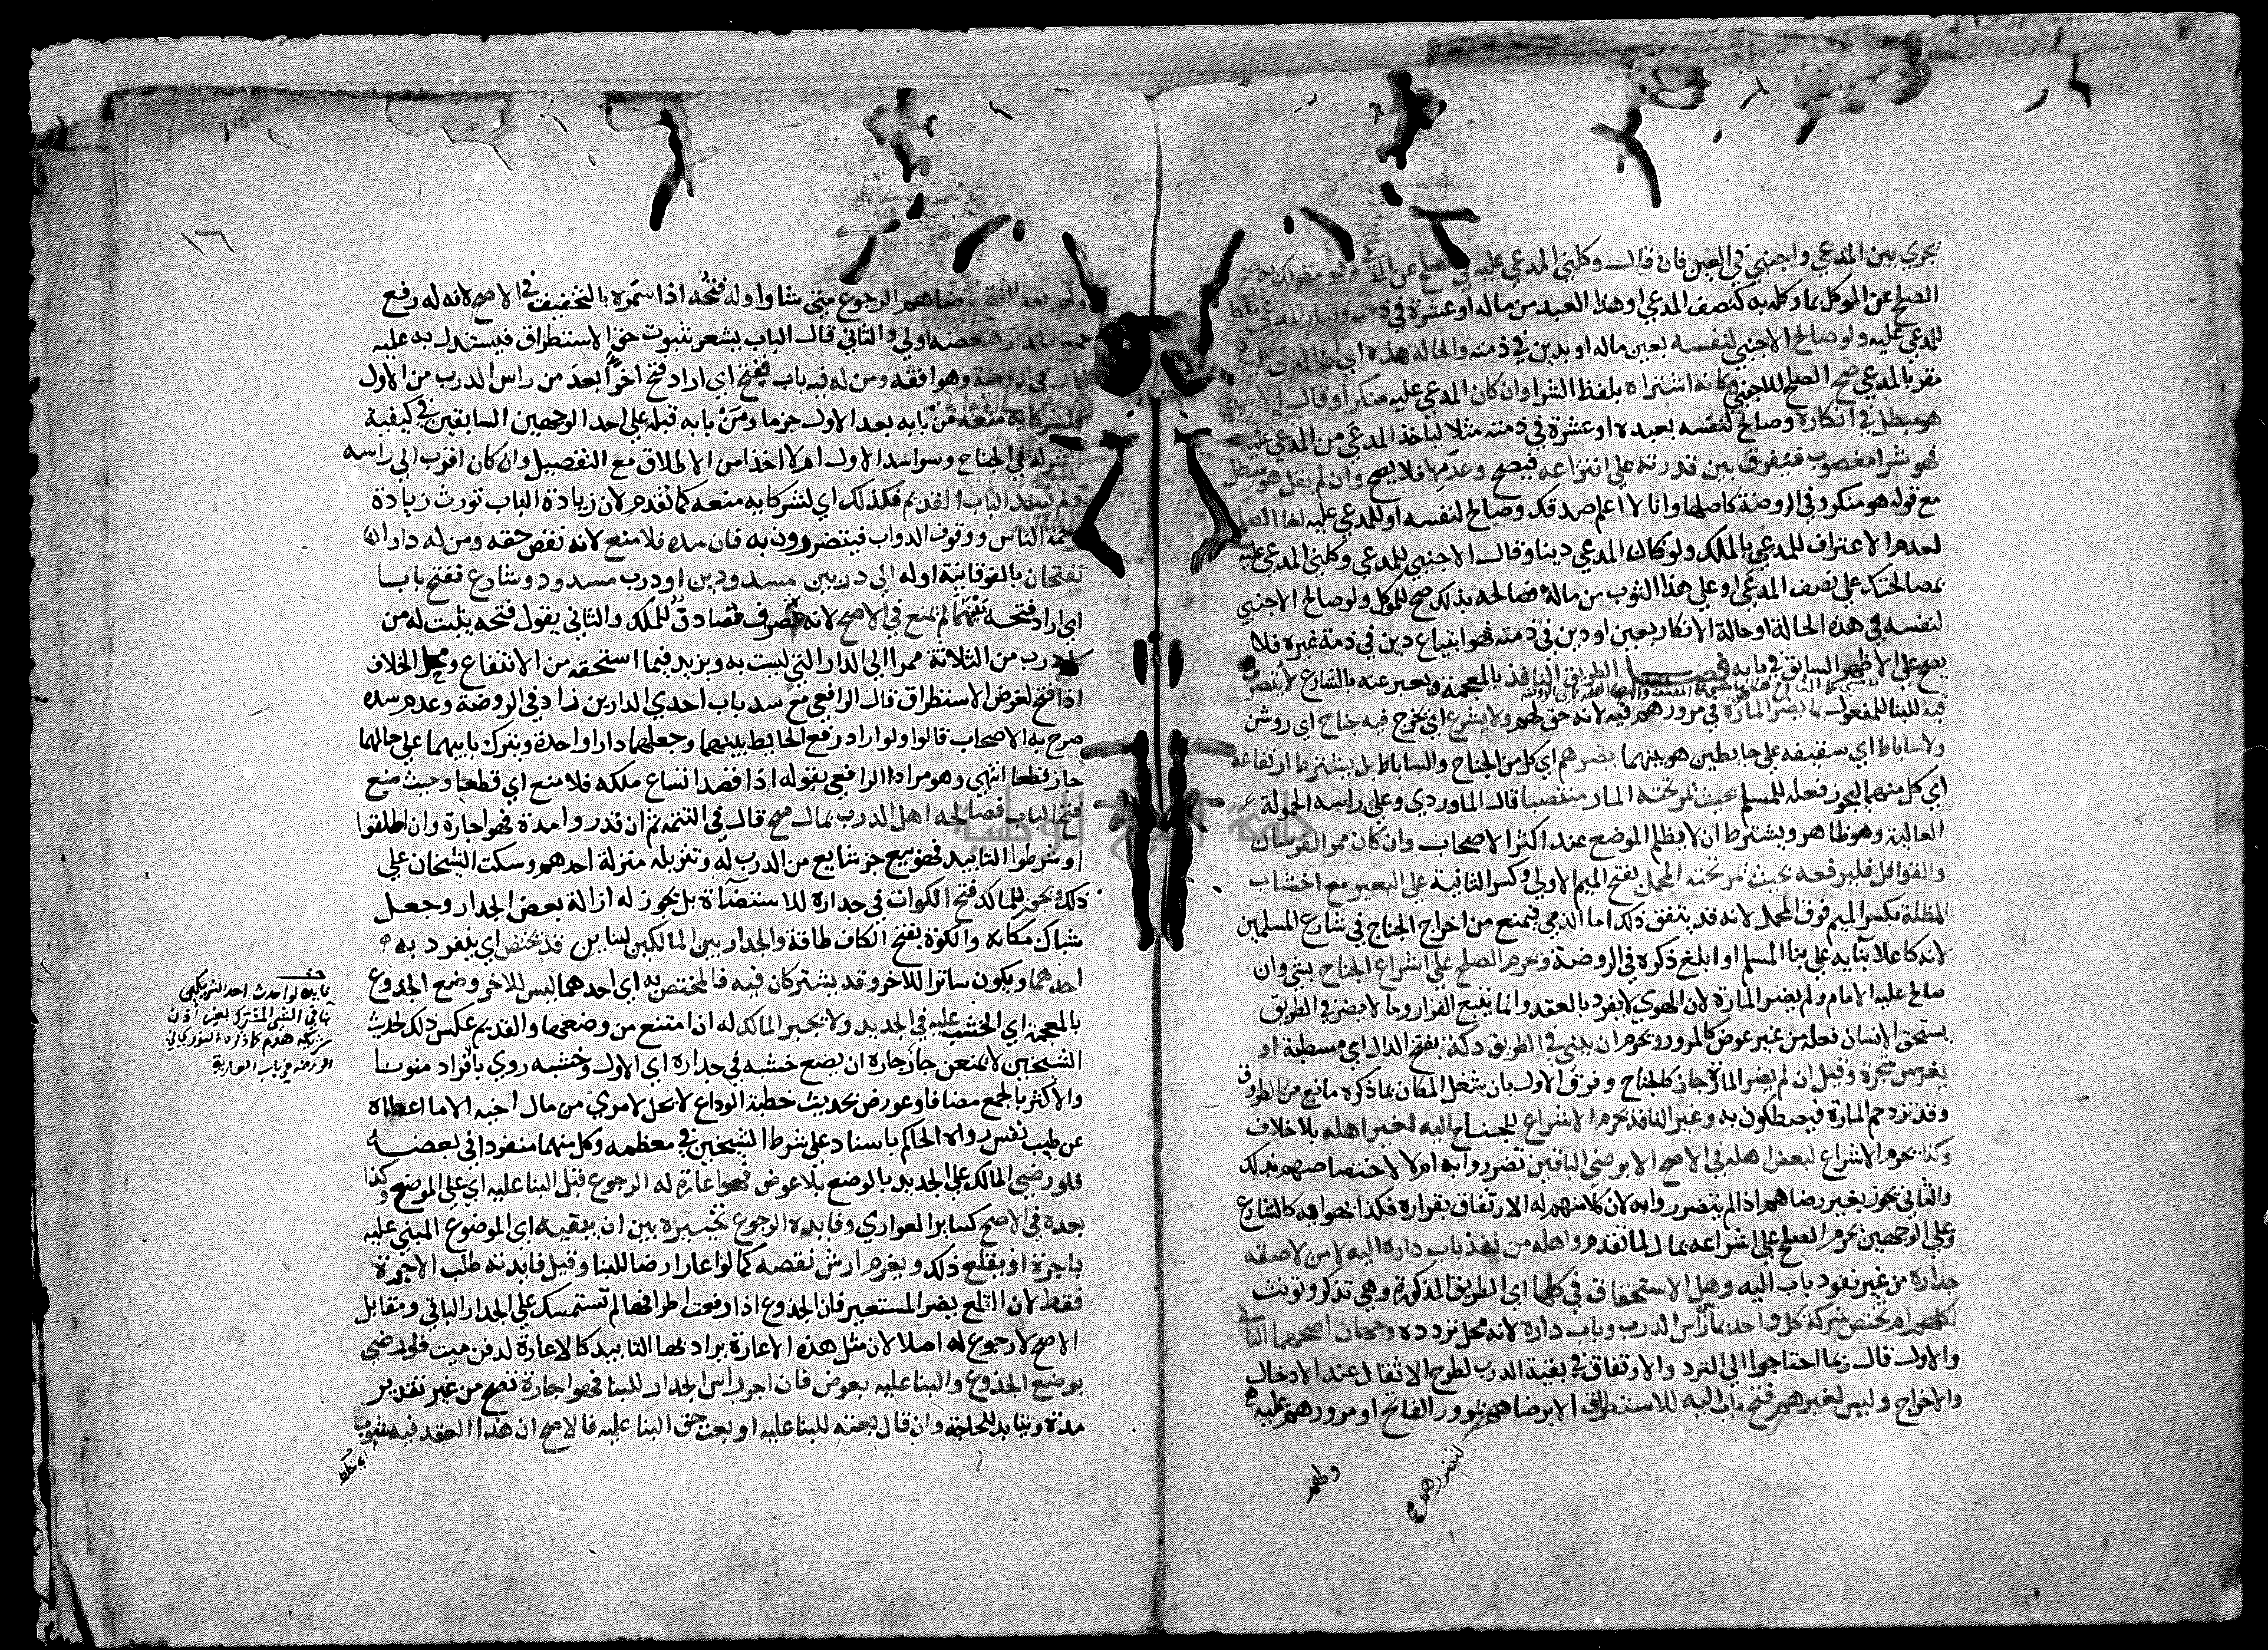 يجري بين المدعي واجنبي في العين فان قال وكلني المدعي عليه في الصلح عن المدعي وهو مقر لك به صح
الصلح عن الموكل بما وكله به كنصف المدعي او هذا العبد من ماله او عشرة في ذمته وصار المدعي ملكا
للمدعي عليه ولو صالح الاجنبي لنفسه بعين ماله او بدين في ذمته والحالة هذه اي ان المدعي عليه
مقر بالمدعي صح الصلح للاجنبي وكانه اشتراه بلفظ الشرا وان كان المدعي عليه منكرا وقال الاجنبي
هو مبطل في انكاره وصالح لنفسه بعبده او عشرة في ذمته مثلا لياخذ المدعي من المدعي عليه
فهو شرا مغصوب فيفرق بين قدرته علي انتزاعه فيصح وعدمها فلا يصح وان لم يقل هو مبطل
مع قوله هو منكر وفي الروضة كاصلها وانا لا اعلم صدقك وصالح لنفسه او للمدعي عليه لغا الصلح
لعدم الاعتراف للمدعي بالملك ولو كان المدعي دينا وقال الاجنبي للمدعي وكلني المدعي عليه
بمصالحتك علي نصف المدعي او علي هذا الثوب من ماله فصالحه بذلك صح للموكل ولو صالح الاجنبي
لنفسه في هذه الحالة او حالة الانكار بعين او دين في ذمته فهو ابتياع دين في ذمة غيره فلا
يصح علي الاظهر السابق في بابه فصل الطريق النافذ بالمعجمة ويعبر عنه بالشارع لا يتصرف
فيه للبنا للمفعول بما يضر المارة في مرورهم فيه لانه حق لهم ولا يشرع اي يخرج فيه جناح اي روشن
ولا ساباط اي سقيفة علي حايطين هو بينهما يضرهم اي كل من الجناح والساباط بل يشترط ارتفاعه
اي كل منهما ليجوز فعله للمسلم بحيث يمر تحته المار منتصبا قال الماوردي وعلي راسه الحمولة
العالية وهو ظاهر ويشترط ان لا يظلم الموضع عند اكثر الاصحاب وان كان ممر الفرسان
والقوافل فليرفعه بحيث يمر تحته المحمل بفتح الميم الاولي وكسر الثانية علي البعير مع اخشاب
المظلة بكسر الميم فوق المحمل لانه قد يتفق ذلك اما الذمي فيمنع من اخراج الجناح في شارع المسلمين
لانه كاعلا بنايه علي بنا المسلم او ابلغ ذكره في الروضة ويحرم الصلح علي اشراع الجناح بشي وان
صالح عليه الامام ولم يضر المارة لان الهوي لا يفرد بالعقد وانما يتبع القرار وما لا يضر في الطريق
يستحق الانسان فعله من غير عوض كالمرور ويحرم ان يبني في الطريق دكة بفتح الدال اي مسطبة او
يغرس شجرة وقيل ان لم يضر المارة جاز كالجناح وفرق الاول بان شغل المكان بما ذكره مانع من الطروق
وقد تزدحم المارة فيصطكون به وغير النافذ يحرم الاشراع للجناح اليه لغير اهله بلا خلاف
وكذا يحرم الاشراع لبعض اهله في الاصح الا برضي الباقين تضرروا به ام لا لاختصاصهم بذلك
والثاني يجوز بغير رضاهم اذا لم يتضرروا به لان كلا منهم له الارتفاق بقراره فكذا بهوائه كالشارع
وعلي الوجهين يحرم الصلح علي اشراعه بمال لما تقدم واهله من نفذ باب داره اليه لا من لاصقه
جداره من غير نفوذ باب اليه وهل الاستحقاق في كلها اي الطريق المذكورة وهي تذكر وتونث
لكلهم ام يختص شركة كل واحد بما بين راس الدرب وباب داره لانه محل تردده وجهان اصحهما الثاني
والاول قال ربما احتاجوا الي التردد والارتفاق في بقية الدرب لطرح الاثقال عند الادخال
والاخراج وليس لغيرهم فتح باب اليه للاستطراق الا برضاهم مرور الفاتح او مرورهم عليه
لتضررهم
ولهم
١٦
ولهم بعد الفتح برضاهم الرجوع متي شاوا وله فتحه اذا سمره بالتخفيف في الاصح لانه له رفع
جميع الجدار فبعضه اولي والثاني قال الباب يشعر بثبوت حق الاستطراق فيستدل به عليه
قال في الروضة وهو افقه ومن له فيه باب ففتح اي اراد فتح اخر ابعد من راس الدرب من الاول
فلشركايه منعه من بابه بعد الاول جزما ومن بابه قبله علي احد الوجهين السابقين في كيفية
الشركة في الجناح وسوا سد الاول ام لا اخذا من الاطلاق مع التفصيل وان كان اقرب الي راسه
ولم يسد الباب القديم فكذلك اي لشركايه منعه كما تقدم لان زيادة الباب تورث زيادة
زحمة الناس ووقوف الدواب فيتضررون به فان سده فلا منع لانه نقص حقه ومن له داران
تفتحان بالفوقانية اوله الي دربين مسدودين او درب مسدود وشارع ففتح بابا
اي اراد فتحه بينهما لم يمنع في الاصح لانه تصرف مصادق للملك والثاني يقول فتحه يثبت له من
كل درب من الثلاثة ممرا الي الدار التي ليست به ويزيد فيما استحقه من الانتفاع ومحل الخلاف
اذا فتح لغرض الاستطراق قال الرافعي مع سد باب احدي الدارين زاد في الروضة وعدم سده
صرح به الاصحاب قالوا ولو اراد رفع الحايط بينهما وجعلهما دارا واحدة ويترك بابيهما علي حالهما
جاز قطعا انتهي وهو مراد الرافعي بقوله اذا قصد اتساع ملكه فلا منع اي قطعا وحيث منع
فتح الباب فصالحه اهل الدرب بمال صح قال في التتمة ثم ان قدروا مدة فهو اجارة وان اطلقوا
او شرطوا التابيد فهو بيع جز شايع من الدرب له وتنزيله منزلة احدهم وسكت الشيخان علي
ذلك ويجوز للمالك فتح الكوات في جداره للاستضاة بل يجوز له ازالة بعض الجدار وجعل
شباك مكانه والكوة بفتح الكاف طاقة والجدار بين المالكين لبناين قد يختص اي ينفرد به
احدهما ويكون ساترا للاخر وقد يشتركان فيه فالمختص به اي احدهما ليس للاخر وضع الجذوع
بالمعجمة اي الخشب عليه في الجديد ولا يجبر المالك له ان امتنع من وضعها والقديم عكس ذلك لحديث
الشيخين لا يمنعن جار جاره ان يضع خشبه في جداره اي الاول وخشبه روي بافراد منونا
والاكثر بالجمع مضافا وعورض بحديث خطبة الوداع لا يحل لامري من مال اخيه الا ما اعطاه
عن طيب نفس رواه الحاكم باسناد علي شرط الشيخين في معظمه وكل منهما منفردا في بعضه
فلو رضي المالك علي الجديد بالوضع بلا عوض فهو اعارة له الرجوع قبل البنا عليه اي علي الموضع وكذا
بعده في الاصح كساير العواري وفايدة الرجوع تخييره بين ان يبقيه اي الموضوع المبني عليه
باجرة او يقلع ذلك ويغرم ارش نقصه كما لو اعار ارضا للبنا وقيل فايدته طلب الاجرة
فقط لان القلع يضر المستعير فان الجذوع اذا رفعت اطرافها لم تستمسك علي الجدار الباقي ومقابل
الاصح لا رجوع له اصلا لان مثل هذه الاعارة يراد بها التابيد كالاعارة لدفن ميت فلو رضي
بوضع الجذوع والبنا عليه بعوض فان اجر راس الجدار للبنا فهو اجارة تصح من غير تقدير
مدة وتتابد للحاجة وان قال بعته للبنا عليه او بعت حق البنا عليه فالاصح ان هذا العقد فيه شوب
فايدة لو احدث احد الشريكين
بنا في الشي المشترك بغير اذن
شريكه هدم كما ذكره النووي في
الروضة في باب العارية